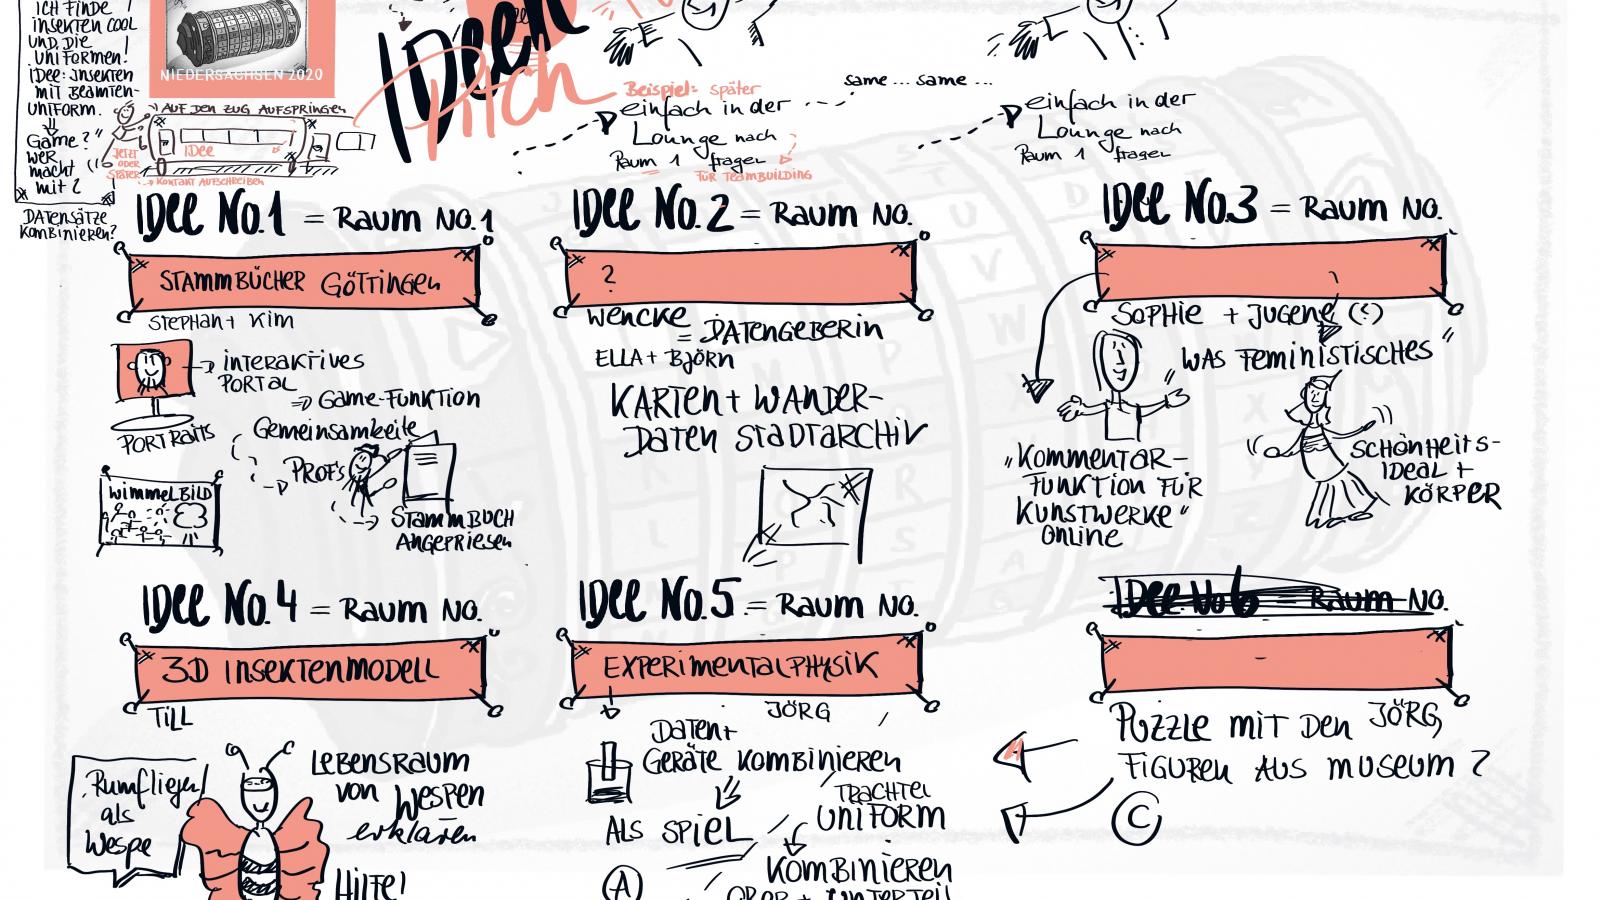 ICH FINDE
INSEKTEN COOL
UND DIE
UNIFORMEN!
IDEE: INSEKTEN
MIT BEAMTEN-
UNIFORM.
GAME?"
WER
MACHT
MIT?
DATENSÄTZE
KOMBINIEREN?
NIEDERSACHSEN 2020
AUF DEN ZUG AUFSPRINGEN
IDEE
JETZT
ODER
SPÄTER
KONTAKT AUFSCHREIBEN
IDEEN
Pitch
Beispiel: später
einfach in der
Lounge nach
Raum 1 fragen
FÜR TEAMBUILDING
same ... same ...
einfach in der
Lounge nach
Raum 1 fragen
IDEE No.1 = RAUM NO.1
STAMMBÜCHER GÖTTINGEN
STEPHAN + KIM
INTERAKTIVES
PORTAL
=> GAME-FUNKTION
PORTRAITS
GEMEINSAMKEITE
PROF'S
WIMMELBILD
STAMMBUCH
ANGEPRIESEN
IDEE No.2 = RAUM NO.
?
WENCKE = DATENGEBERIN
ELLA + BJÖRN
KARTEN + WANDER-
DATEN STADTARCHIV
IDEE No.3 = RAUM NO.
SOPHIE + JUGENE (?)
"WAS FEMINISTISCHES"
"KOMMENTAR-
FUNKTION FÜR
KUNSTWERKE"
ONLINE
SCHÖNHEITS-
IDEAL +
KÖRPER
IDEE No.4 = RAUM NO.
3D INSEKTENMODELL
TILL
Rumfliegen
als
Wespe
LEBENSRAUM
VON WESPEN
erklären
HILFE!
IDEE No.5 = RAUM NO.
EXPERIMENTALPHYSIK
JÖRG
DATEN +
GERÄTE KOMBINIEREN
ALS SPIEL
A
TRACHTEN
UNIFORM
KOMBINIEREN
OBER + UNTERTEIL
IDEE No 6 = RAUM NO.
-
PUZZLE MIT DEN JÖRG
FIGUREN AUS MUSEUM?
A
C